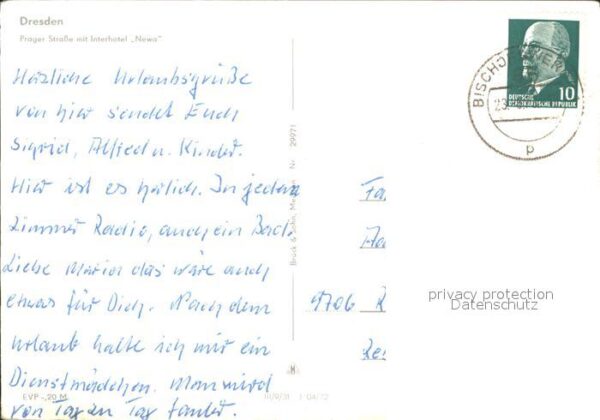 Dresden
Prager Straße mit Interhotel „Newa"
Herzliche Urlaubsgrüße
von hier sendet Euch
Sigrid, Alfred u. Kinder.
Hier ist es herlich. In jedem
Zimmer Radio, auch ein Bad.
Liebe Maria das wäre auch
etwas für Dich. Nach dem
Urlaub halte ich mir ein
Dienstmädchen. Man wird
von Tag zu Tag fauler.
EVP -,20 M
III/9/31 1 04/72
Brück & Sohn, Meißen Nr. 29971
BISCHOFSWER
p
DEUTSCHE
DEMOKRATISCHE REPUBLIK
10
Fa
4706 R
privacy protection
Datenschutz